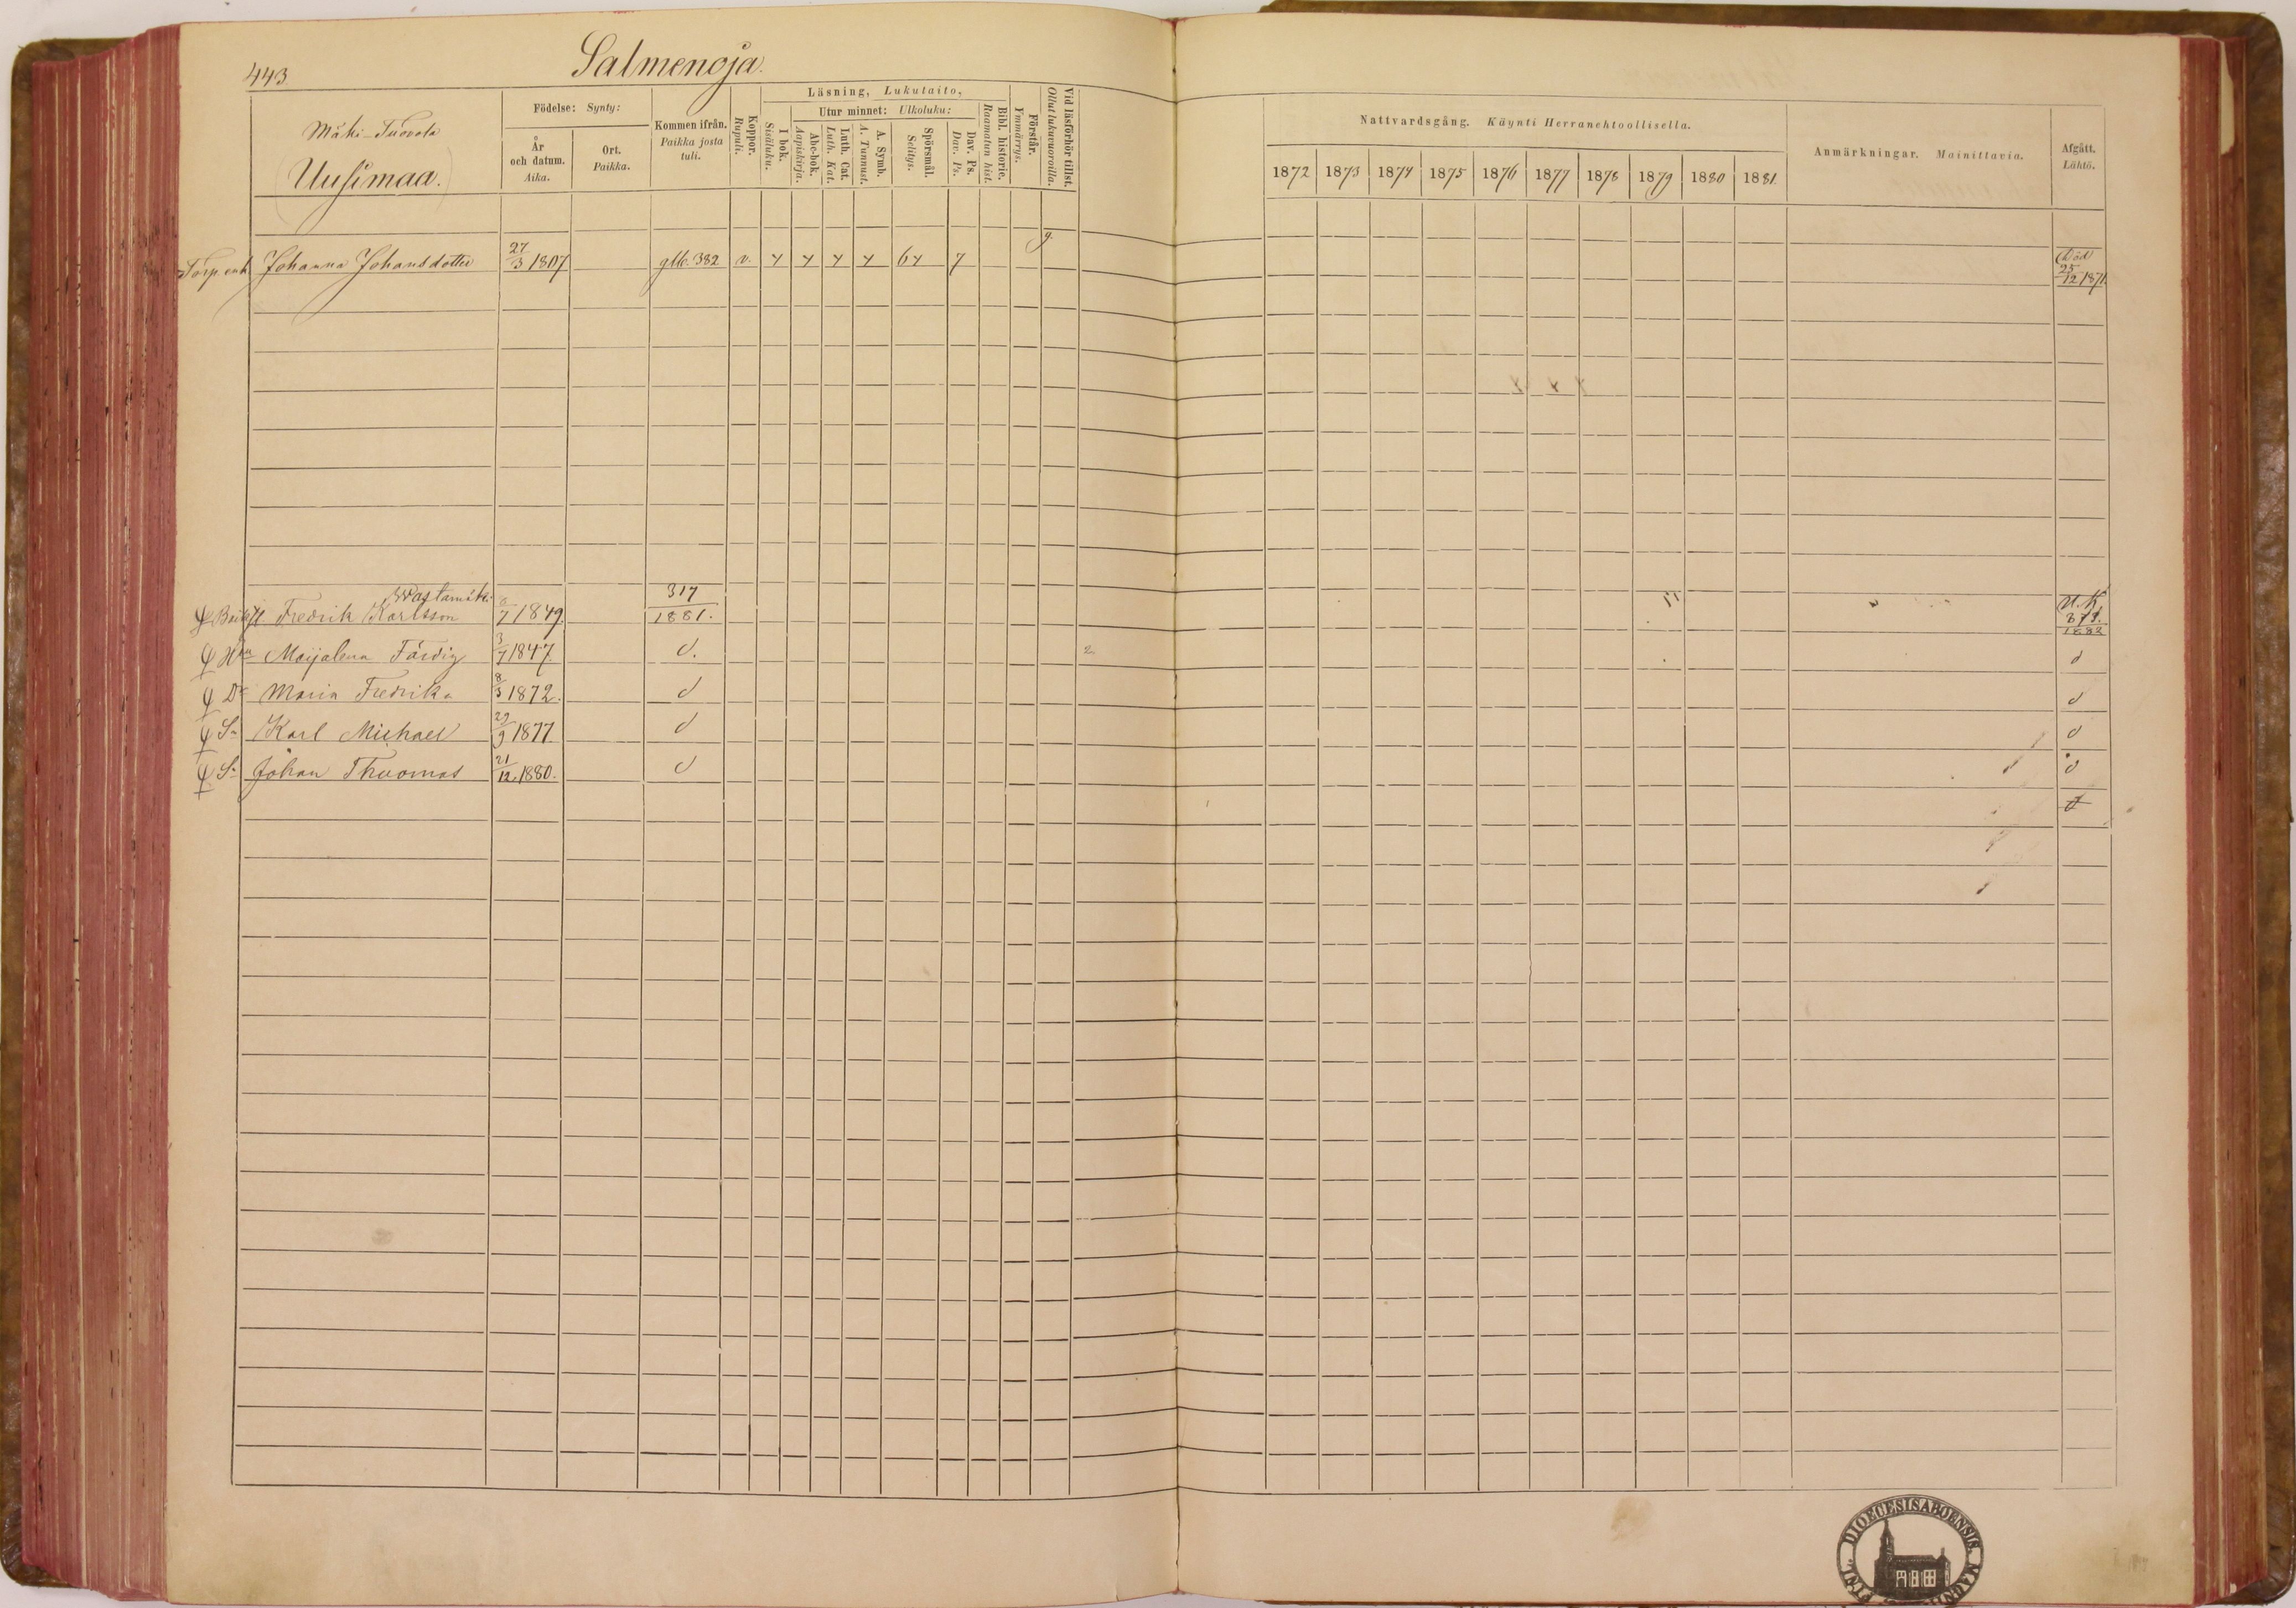 443
Salmenoja.
Mäki-Tuovola
Uusimaa.
Födelse: Synty:
År och datum. Aika.
Ort. Paikka.
Kommen ifrån. Paikka josta tuli.
Koppor. Rupuli.
Läsning, Lukutaito,
I bok. Sisäluku.
Utur minnet: Ulkoluku:
Abc-bok. Aapiskirja.
Luth. Cat. Luth. Kat.
A. Symb. A. Tunnust.
Spörsmål. Selitys.
Dav. Ps. Dav. Ps.
Bibl. historie. Raamatun hist.
Förstår. Ymmärrys.
Vid läsförhör tillst. Ollut lukuvuoroilla.
Nattvardsgång. Käynti Herranehtoollisella.
1872 1873 1874 1875 1876 1877 1878 1879 1880 1881
Anmärkningar. Mainittavia.
Afgått. Lähtö.
Torp. enk. Johanna Johansdotter 27/3 1807 glb. 382 v. 6 7 g. Död 25/12 1871
Wastamäki
Fredrik Karlsson 6/7 1849 317/1881. 1882
Maijalena Färdig 3/7 1847. d. 2 d
Dr Maria Fredrika 8/3 1872. d d
Sn Karl Michael 29/9 1877 d d
Sn Johan Thuomas 21/12 1880. d d
DIOECESIS ABOENSIS